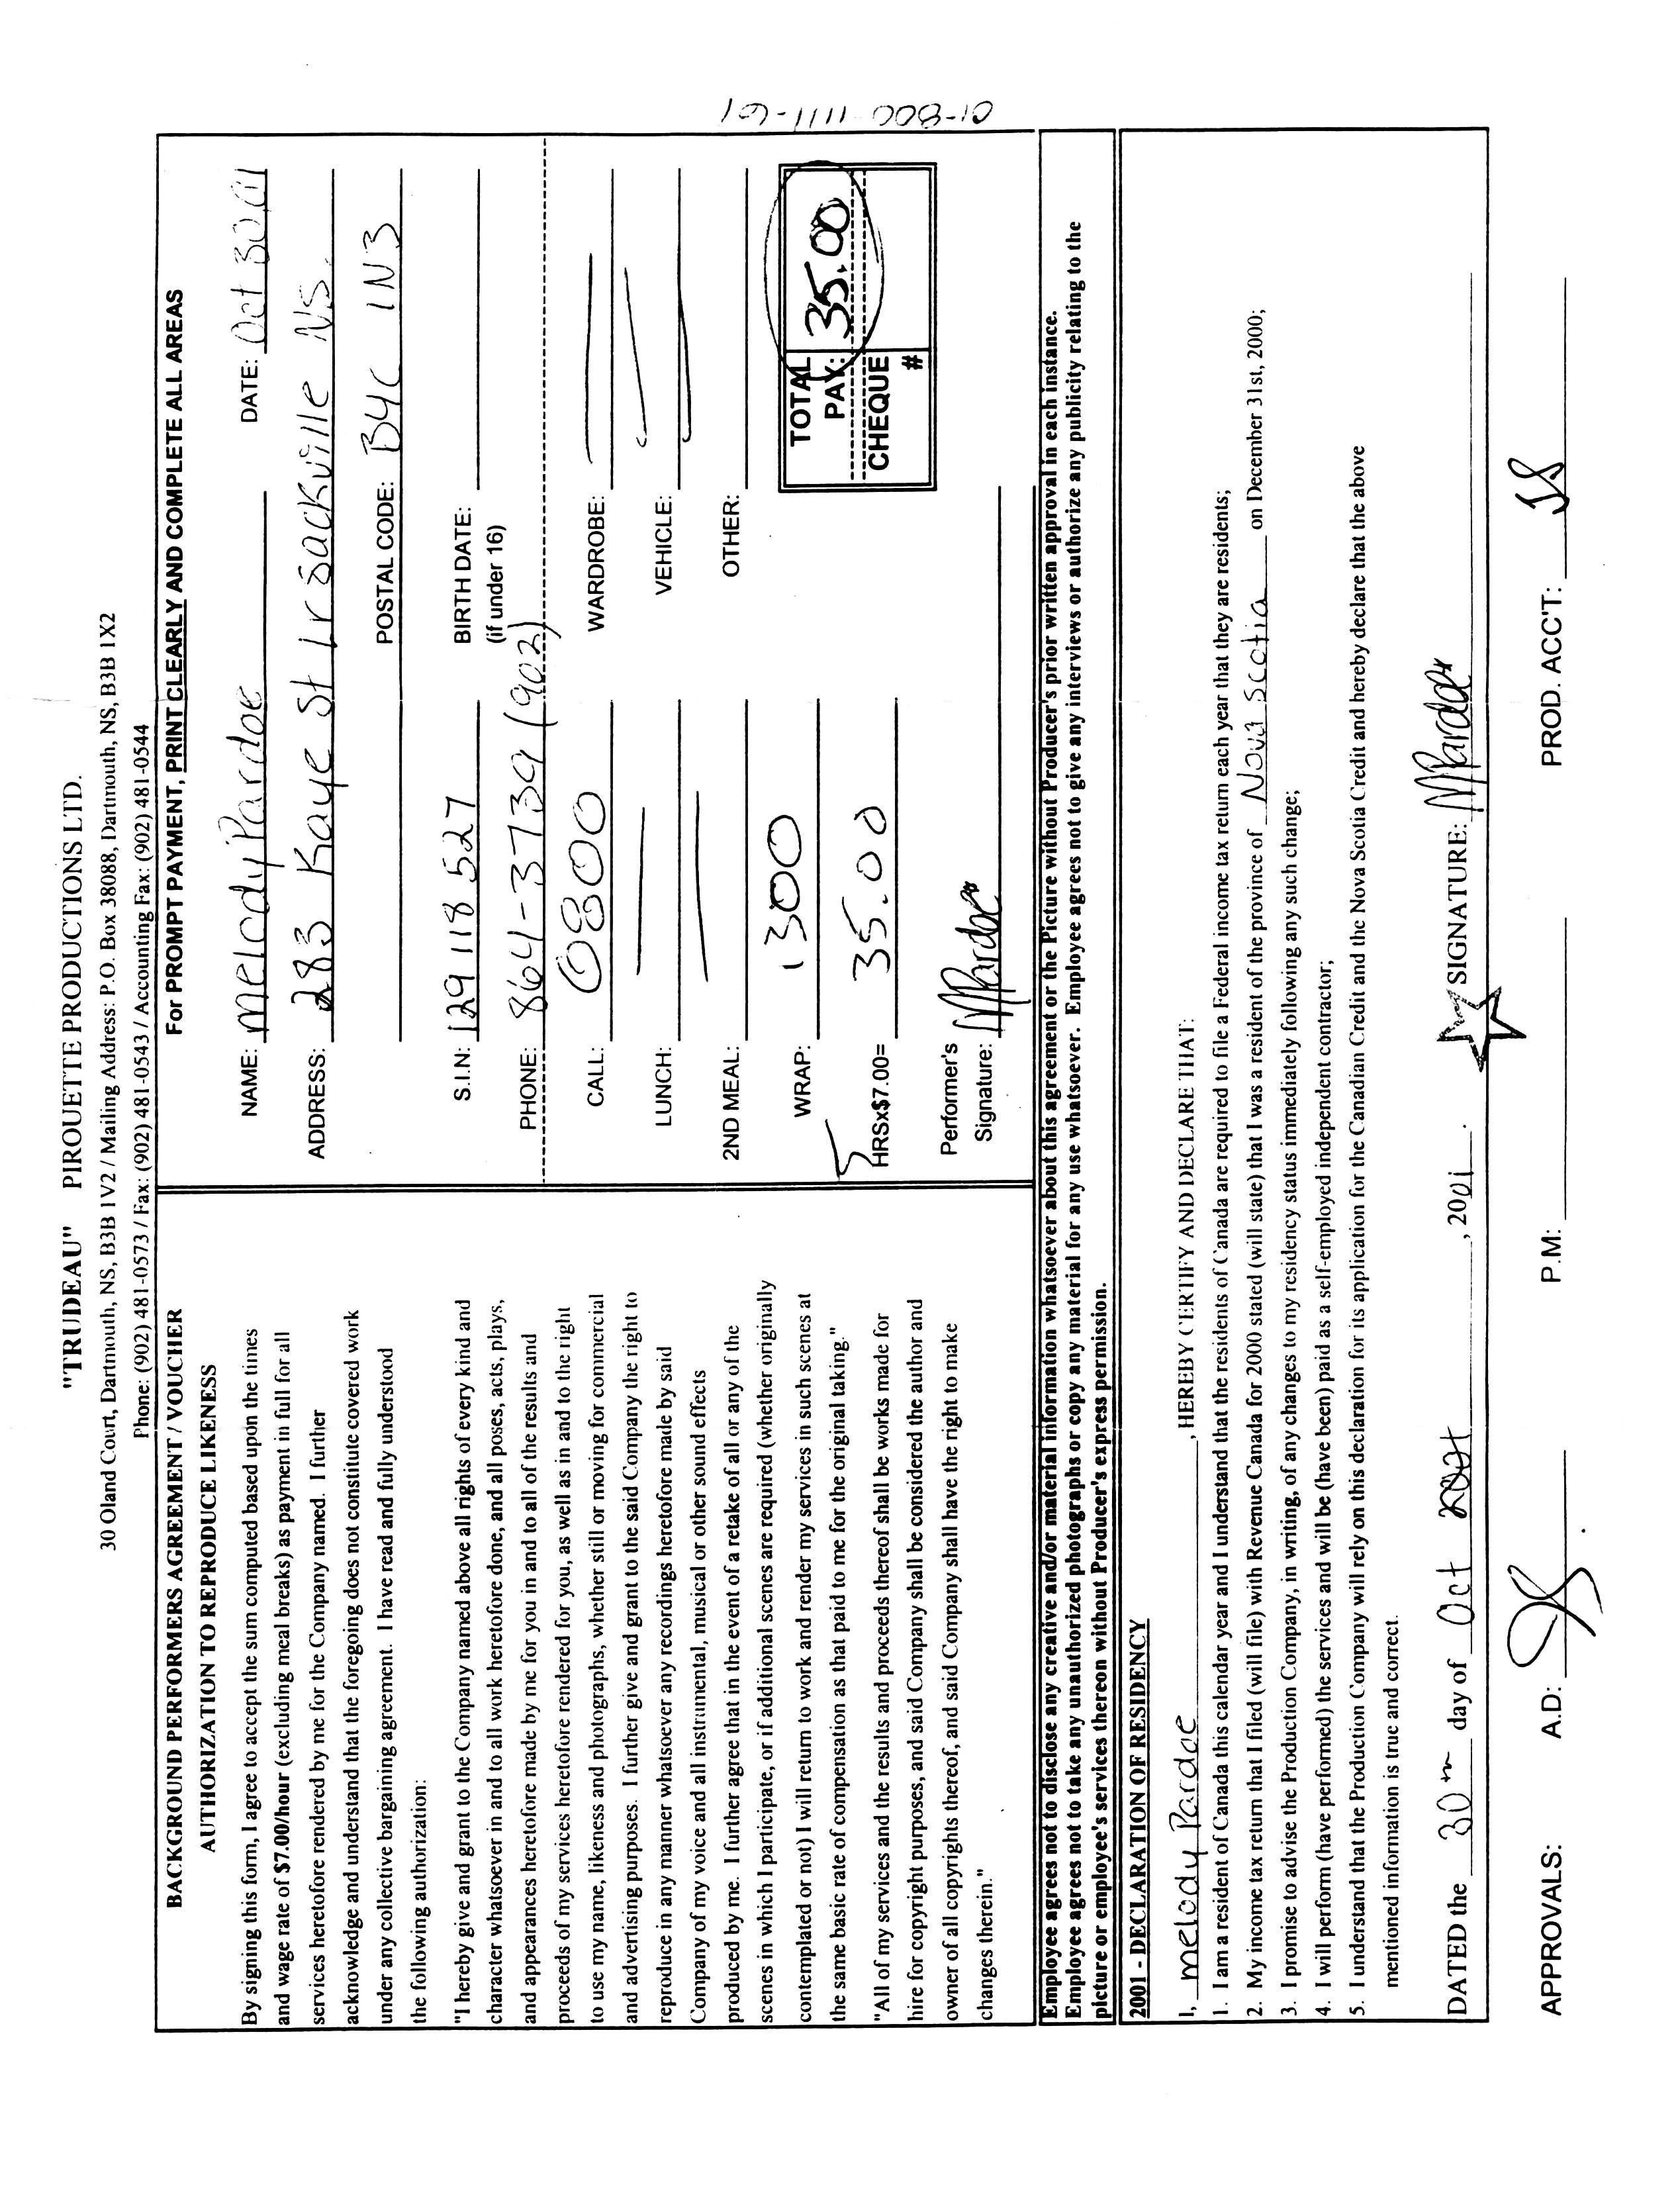 "TRUDEAU" PIROUETTE PRODUCTIONS LTD.
30 Oland Court, Dartmouth, NS, B3B 1V2 / Mailing Address: P.O. Box 38088, Dartmouth, NS, B3B 1X2
Phone: (902) 481-0573 / Fax: (902) 481-0543 / Accounting Fax: (902) 481-0544
BACKGROUND PERFORMERS AGREEMENT / VOUCHER
AUTHORIZATION TO REPRODUCE LIKENESS
By signing this form, I agree to accept the sum computed based upon the times
and wage rate of $7.00/hour (excluding meal breaks) as payment in full for all
services heretofore rendered by me for the Company named. I further
acknowledge and understand that the foregoing does not constitute covered work
under any collective bargaining agreement. I have read and fully understood
the following authorization:
"I hereby give and grant to the Company named above all rights of every kind and
character whatsoever in and to all work heretofore done, and all poses, acts, plays,
and appearances heretofore made by me for you in and to all of the results and
proceeds of my services heretofore rendered for you, as well as in and to the right
to use my name, likeness and photographs, whether still or moving for commercial
and advertising purposes. I further give and grant to the said Company the right to
reproduce in any manner whatsoever any recordings heretofore made by said
Company of my voice and all instrumental, musical or other sound effects
produced by me. I further agree that in the event of a retake of all or any of the
scenes in which I participate, or if additional scenes are required (whether originally
contemplated or not) I will return to work and render my services in such scenes at
the same basic rate of compensation as that paid to me for the original taking."
"All of my services and the results and proceeds thereof shall be works made for
hire for copyright purposes, and said Company shall be considered the author and
owner of all copyrights thereof, and said Company shall have the right to make
changes therein."
For PROMPT PAYMENT, PRINT CLEARLY AND COMPLETE ALL AREAS
NAME: Melody Pardoe DATE: Oct 30,01
ADDRESS: 283 Kaye St Lr Sackville NS.
POSTAL CODE: B4C 1N3
S.I.N: 129 118 527 BIRTH DATE:
(if under 16)
PHONE: 864-3739 (902)
CALL: 0800 WARDROBE:
LUNCH: VEHICLE:
2ND MEAL: OTHER:
WRAP: 1300
TOTAL PAY: 35.00
CHEQUE #
5 HRSx$7.00= 35.00
Performer's
Signature: MPardoe
01-800-1111-61
Employee agrees not to disclose any creative and/or material information whatsoever about this agreement or the Picture without Producer's prior written approval in each instance.
Employee agrees not to take any unauthorized photographs or copy any material for any use whatsoever. Employee agrees not to give any interviews or authorize any publicity relating to the
picture or employee's services thereon without Producer's express permission.
2001 - DECLARATION OF RESIDENCY
I, Melody Pardoe, HEREBY CERTIFY AND DECLARE THAT:
1. I am a resident of Canada this calendar year and I understand that the residents of Canada are required to file a Federal income tax return each year that they are residents;
2. My income tax return that I filed (will file) with Revenue Canada for 2000 stated (will state) that I was a resident of the province of Nova Scotia on December 31st, 2000;
3. I promise to advise the Production Company, in writing, of any changes to my residency status immediately following any such change;
4. I will perform (have performed) the services and will be (have been) paid as a self-employed independent contractor;
5. I understand that the Production Company will rely on this declaration for its application for the Canadian Credit and the Nova Scotia Credit and hereby declare that the above
mentioned information is true and correct.
DATED the 30th day of Oct, 2001. SIGNATURE: MPardoe
APPROVALS: A.D: P.M: PROD. ACC'T: